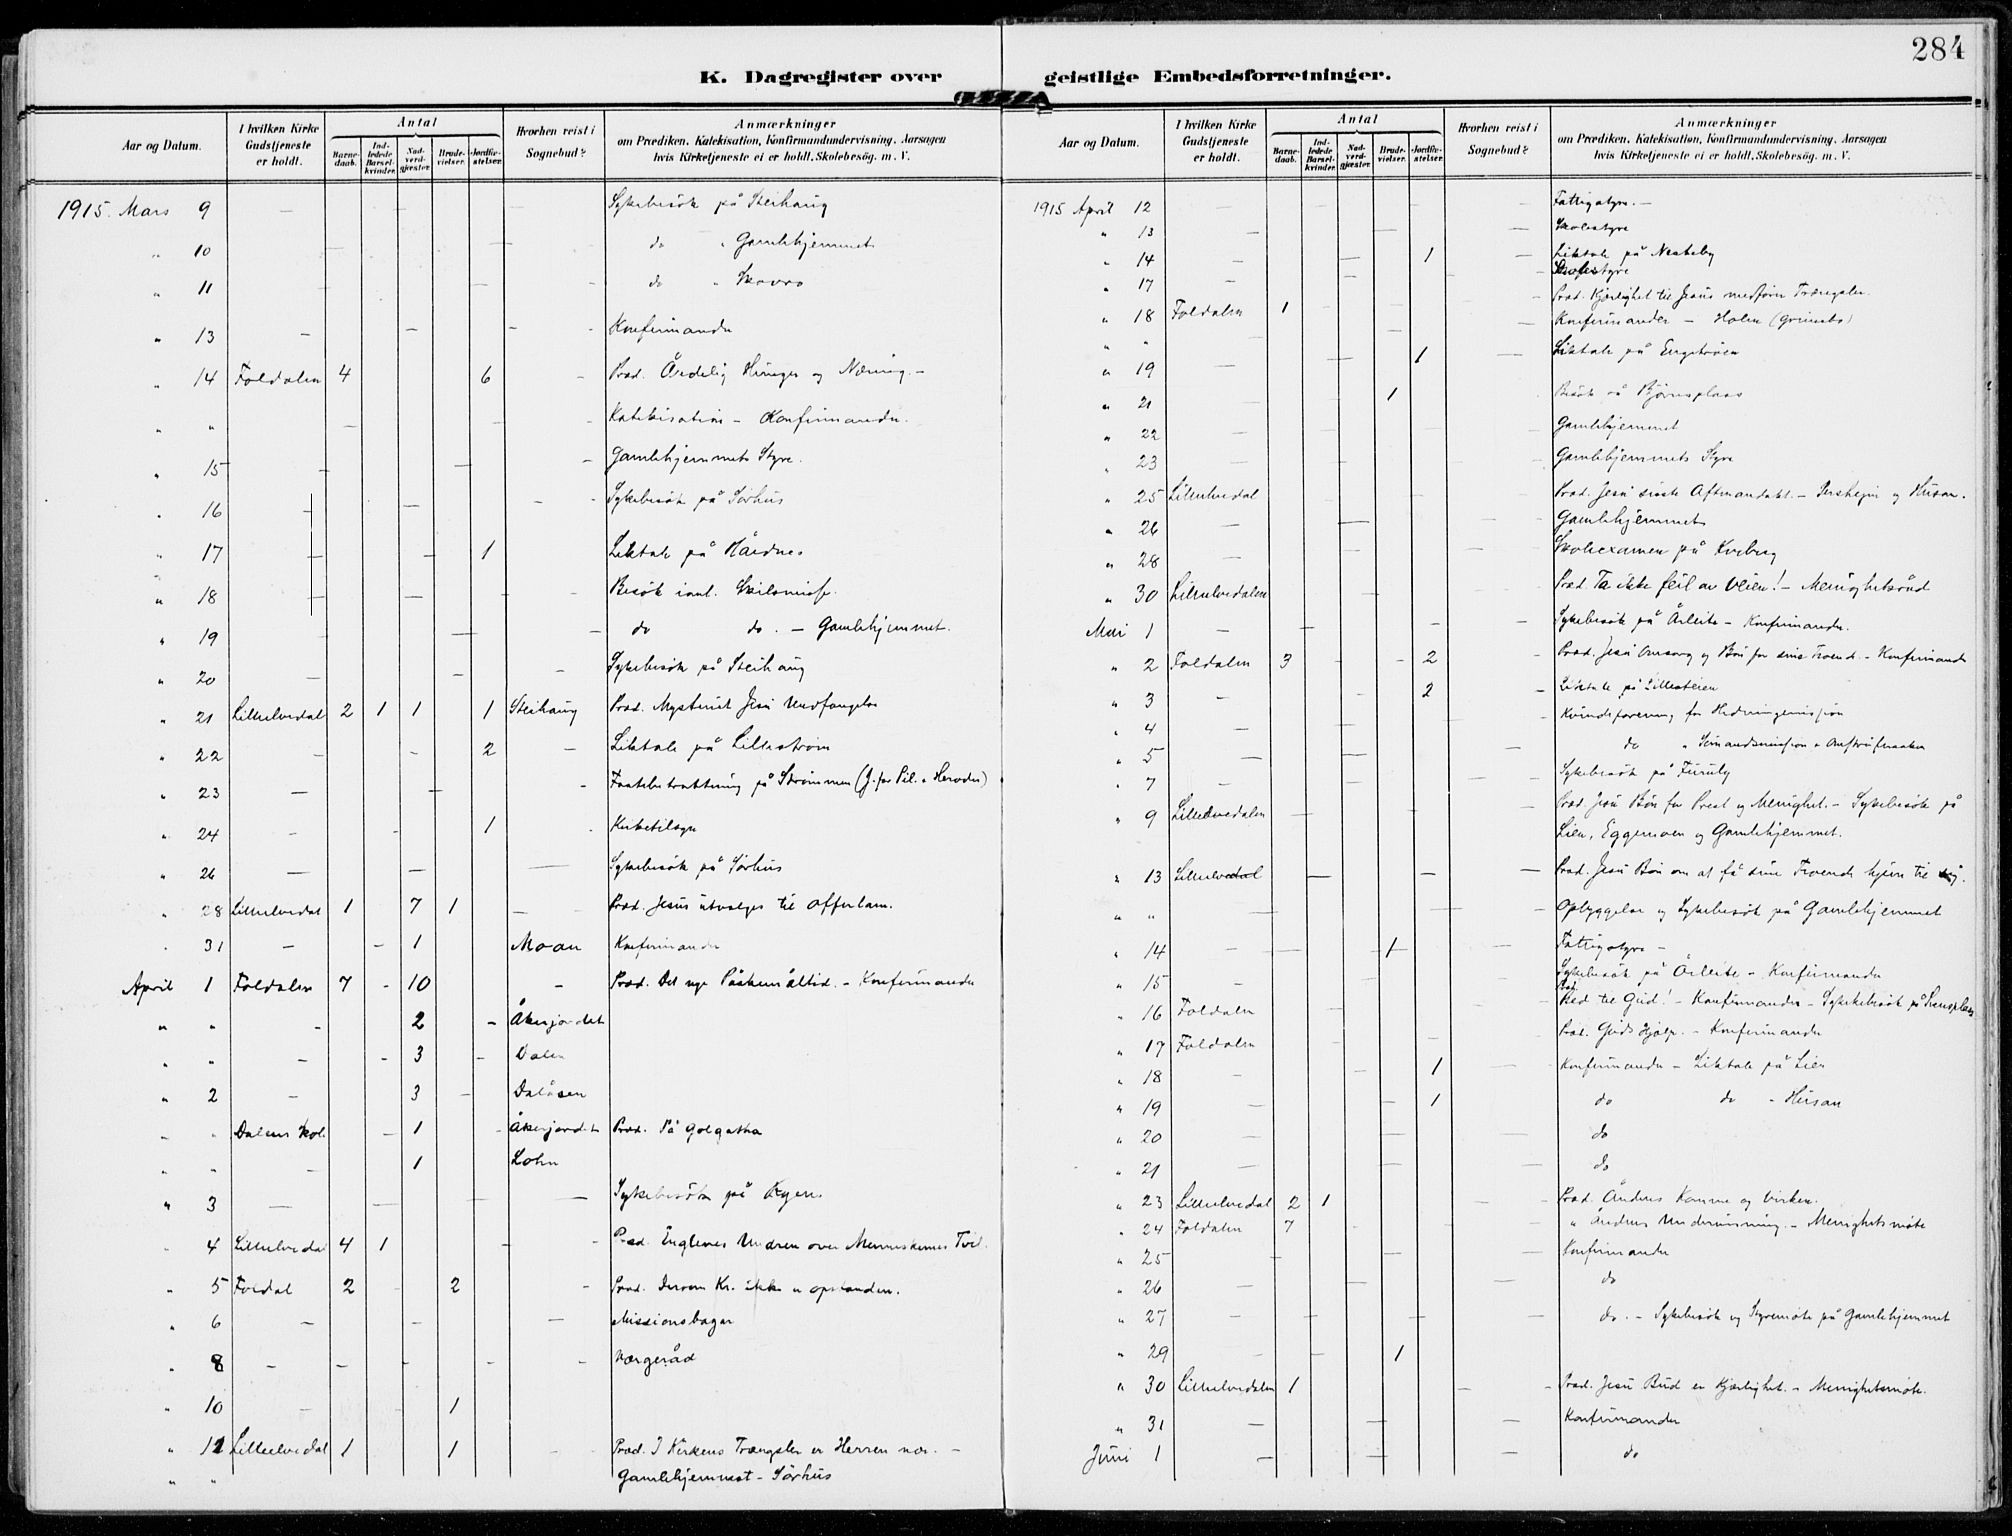 284
K. Dagregister over geistlige Embedsforretninger.
Aar og Datum. | I hvilken Kirke Gudstjeneste er holdt. | Antal | Barnedaab. | Indledede Barselkvinder. | Nadverdgjæster. | Brudevielser. | Jordfæstelser. | Hvorhen reist i Sognebud? | Anmærkninger om Prædiken, Katekisation, Konfirmandundervisning, Aarsagen hvis Kirketjeneste ei er holdt, Skolebesøg. m. V.
1915. Mars 9 — — — Sykebesök på Steihaug
" 10 — — — do " Gamlehjemmet
" 11 — — — do " Skovro
" 13 — — — Konfirmander
" 14 Foldalen 4 6 - Præd. Åndelig Hunger og Næring. -
" " — — Katekisation - Konfirmander.
" 15 — — - Gamlehjemmets Styre.
" 16 — — - Sykebesök på Sörhus
" 17 — — 1 Liktale på
" 18 — — - Besök
" 19 — — - do do. - Gamlehjemmet.
" 20 — — - Sykebesök på Steihaug
" 21 Lilleelvedal 2 1 1 1 Steihaug Præd. Mysteriet Jesu Undfangelse
" 22 — - 2 — Liktale på Lilleström
" 23 — — - Fastebetraktning på Strömmen (J. for Pil. o Herodes)
" 24 — - 1 . Kirketilsyn
" 26 — — — Sykebesök på Sörhus
" 28 Lilleelvedal 1 7 1 — Præd. Jesus utvælges til Offerlam.
" 31 — - 1 Moan Konfirmander
April 1 Foldalen 7 - 10 - Præd. Det nye Påskemåltid. - Konfirmander
" " - 2 - Åkerjordet
" " - - 3 - Dalen
" 2 - 3 — Dalåsen
" " Dalens Skol. - 1 - Åkerjordet Præd. På Golgatha
" " - 1 Lohn
" 3 — — — — Sykebesök på
" 4 Lilleelvedal 4 1 - - Præd. Englenes Undren over Menneskenes Tvil.
" 5 Foldal 2 - 2 - Præd. Dersom Kr. ikke er opstanden.
" 6 - - — Missionsbasar
" 8 - - - - - Værgeråd
" 10 - - 1
" 11 Lilleelvedal 1 1 - Præd. I Kirkens Trængsler er Herren nær. -
" " Gamlehjemmet - Sörhus
Aar og Datum. | I hvilken Kirke Gudstjeneste er holdt. | Antal | Barnedaab. | Indledede Barselkvinder. | Nadverdgjæster. | Brudevielser. | Jordfæstelser. | Hvorhen reist i Sognebud? | Anmærkninger om Prædiken, Katekisation, Konfirmandundervisning, Aarsagen hvis Kirketjeneste ei er holdt, Skolebesøg. m. V.
1915 April 12 — — — Fattigstyre. —
" 13 — — — Skolestyre
" 14 — — 1 — Liktale på Nesteby
" 17 — — - Skolestyre
" 18 Foldalen 1 - - Præd. Kjærlighet til Jesus medförer Trængsler.
" " — — Konfirmander - Holen (Grimsbo)
" 19 — — 1 — Liktale på Engströen
" 21 — 1 . Besök på Björnsplass
" 22 — — Gamlehjemmet
" 23 — — Gamlehjemmets Styre
" 25 Lilleelvedal - Præd. Jesu siste Aftmandakt. - og Husan.
" 26 — — - - Gamlehjemmet
" 28 — — - - Skoleexamen på
" 30 Lilleelvedalen - Præd. Ta ikke feil av Veien! - Menighetsråd
Mai 1 — - - — Sykebesök på Årleite - Konfirmander.
" 2 Foldalen 3 - - 2 - Præd. Jesu Omsorg og Bön for sine Troende. - Konfirmander
" 3 - - 2 - Liktale på Lillesteien
" 4 — - Kvindeforening for Hedningemissjon
" 5 — — do " Sömandsmission o
" 7 — — Sykebesök på Furuly
" 9 Lilleelvedalen — — Præd. Jesu Bön for Prest og Menighet. - Sykebesök på
Lien, Eggemoen og Gamlehjemmet.
" 13 Lilleelvedal — — — Præd. Jesu Bön om at få sine Troende hjem til sig.
" " — — — Opbyggelse og Sykebesök på Gamlehjemmet
" 14 - — 1 — Fattigstyre -
" 15 - — — Sykebesök på Årleite - Konfirmander
" 16 Foldalen - - Bed til Gud! - Konfirmander - Sykebesök på
" 17 Foldalen - - Præd. Guds Hjælp. - Konfirmander
" 18 - - 1 — Konfirmander - Liktale på Lien
" 19 — — 1 — do do - Husan
" 20 — — — do
" 21 — — — do
" 23 Lilleelvedal 2 1 - — Præd. Åndens Komme og Virken.
" 24 Foldalen 7 - - " Åndens Undervisning. - Menighetsmöte
" 25 — — — Konfirmander
" 26 — — — do
" 27 — — — do. - Sykebesök og Styremöte på Gamlehjemmet
" 29 - — 1
" 30 Lilleelvedalen 1 - - Præd. Jesu Bud er Kjærlighet. - Menighetsmöte.
" 31 — — — Konfirmander
Juni 1 — — — do